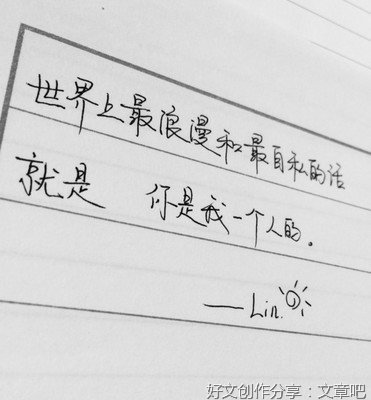 世界上最浪漫和最自私的话
就是 你是我一个人的。
——Lin.
好文创作分享：文章吧